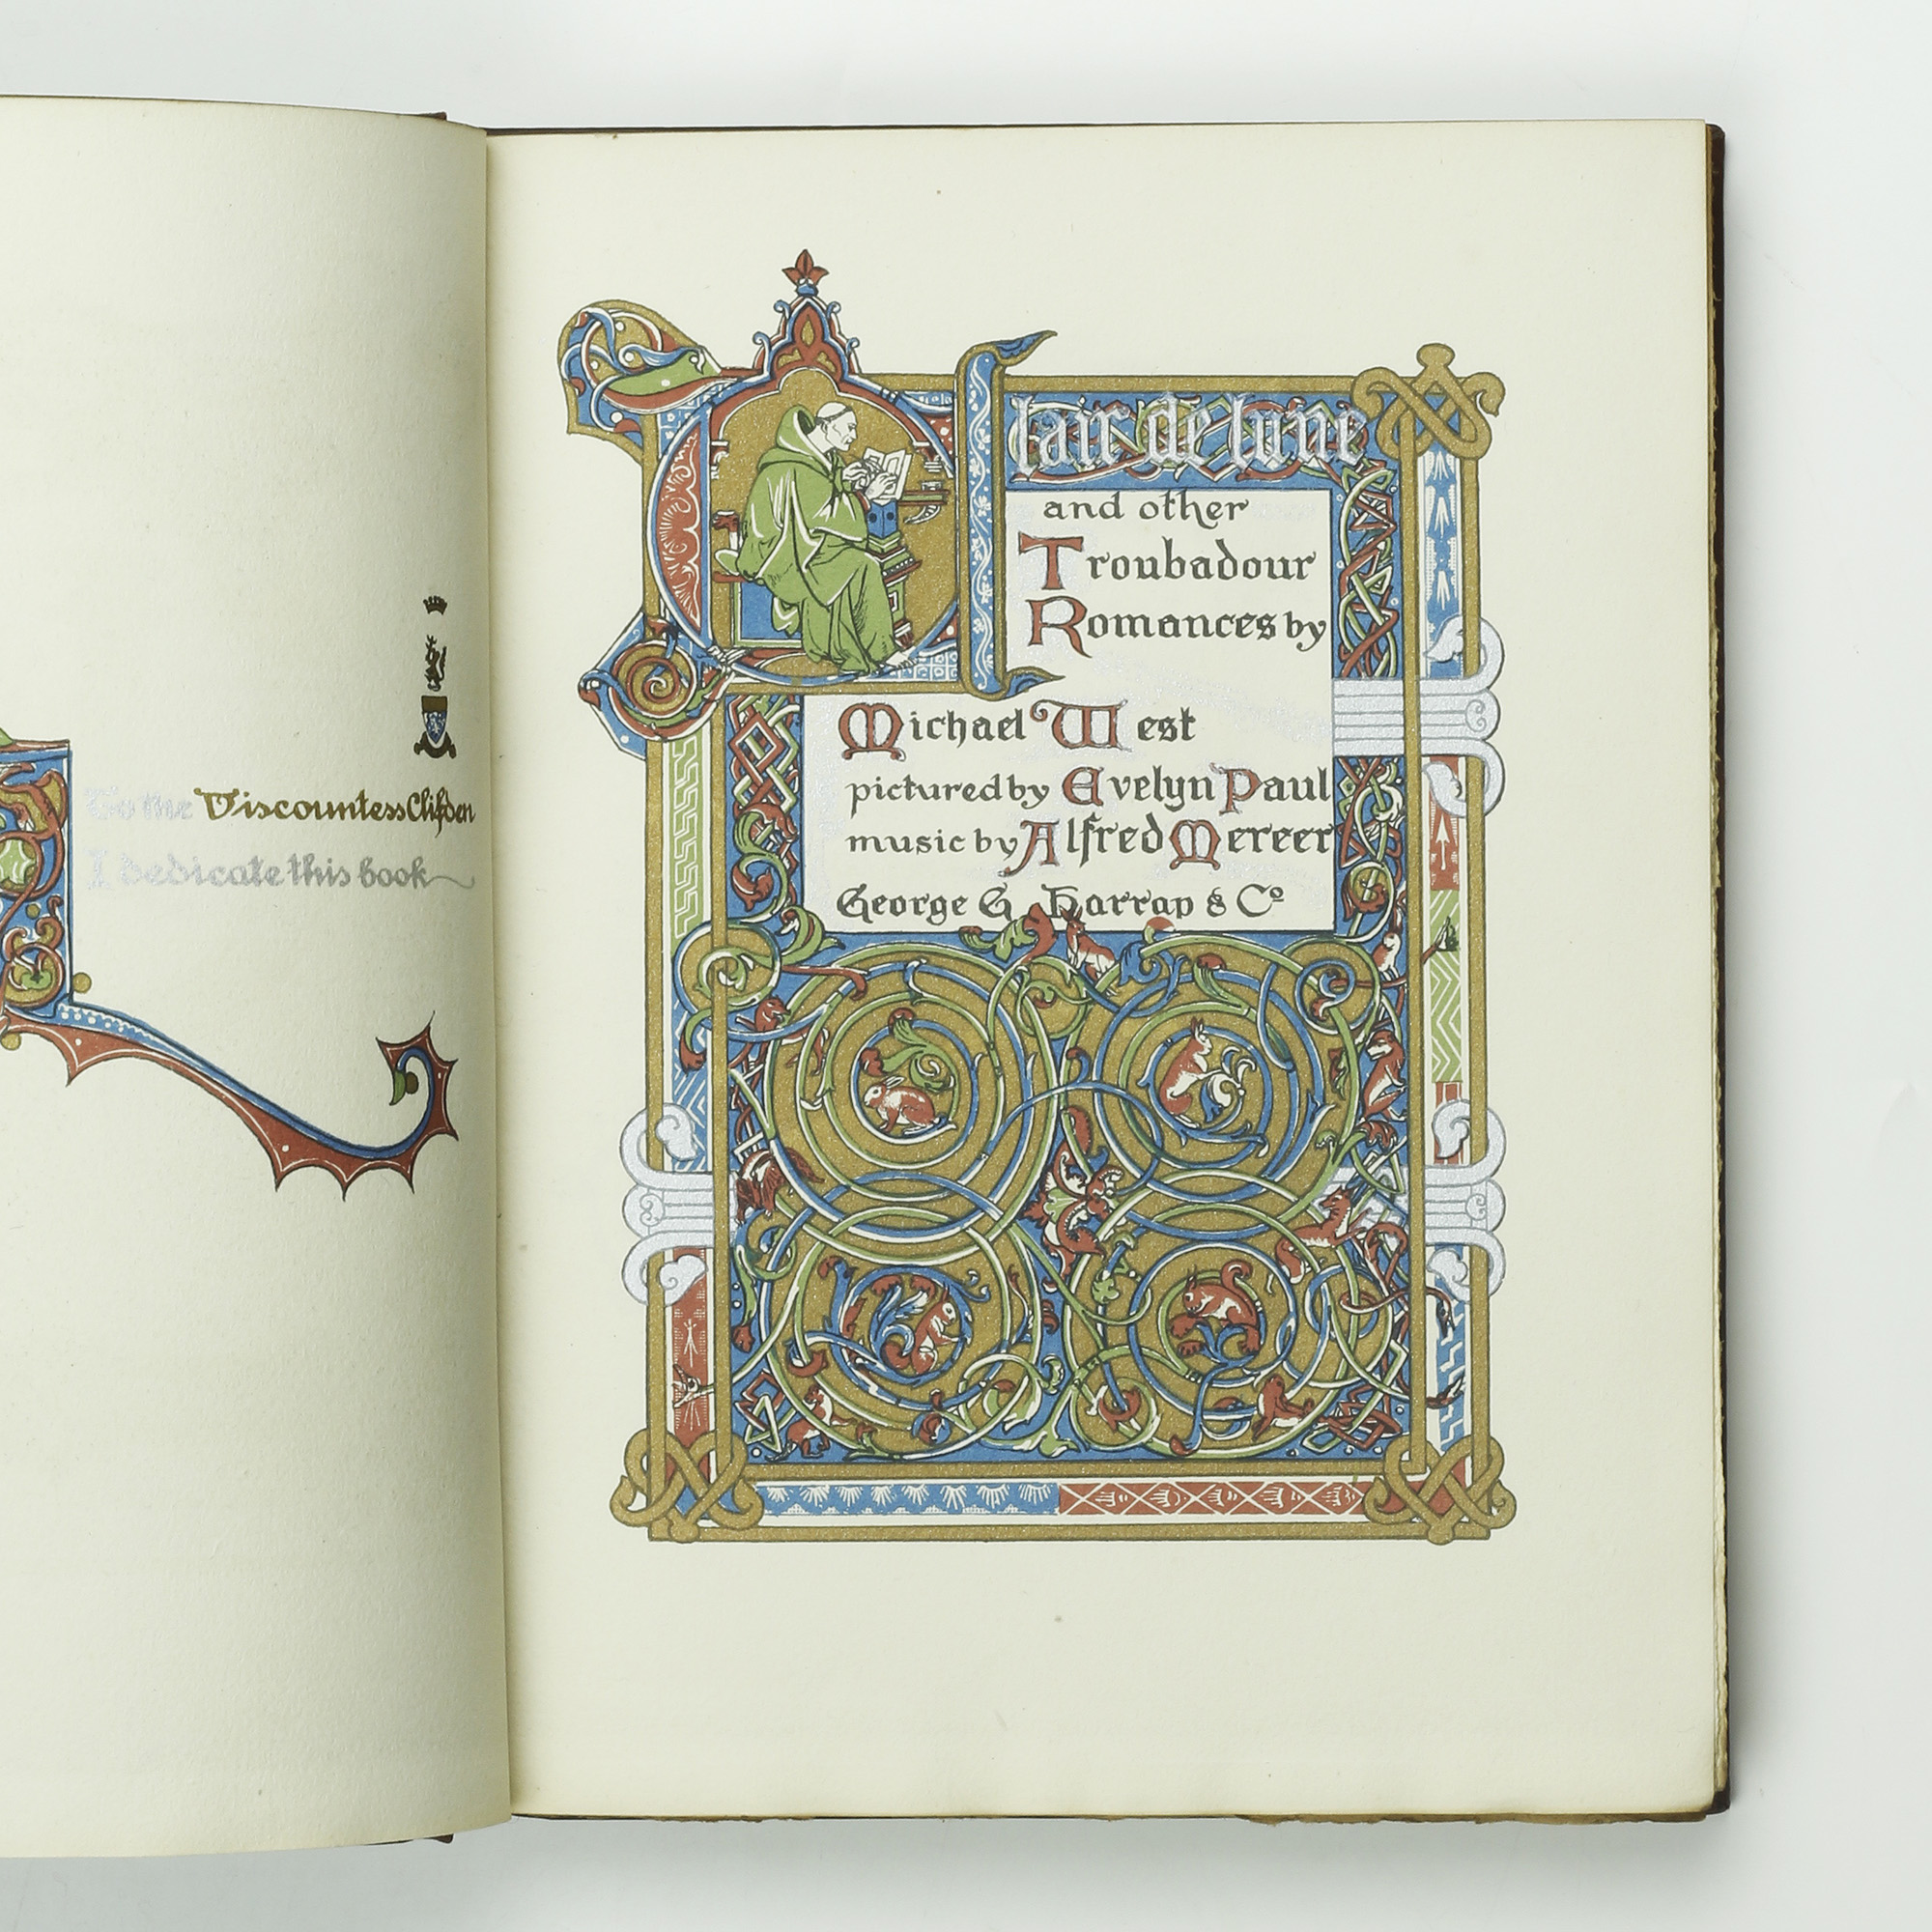 To the Viscountess Clifden
I dedicate this book
Clair de lune
and other
Troubadour
Romances by
Michael West
pictured by Evelyn Paul
music by Alfred Mercer
George G. Harrap & Co